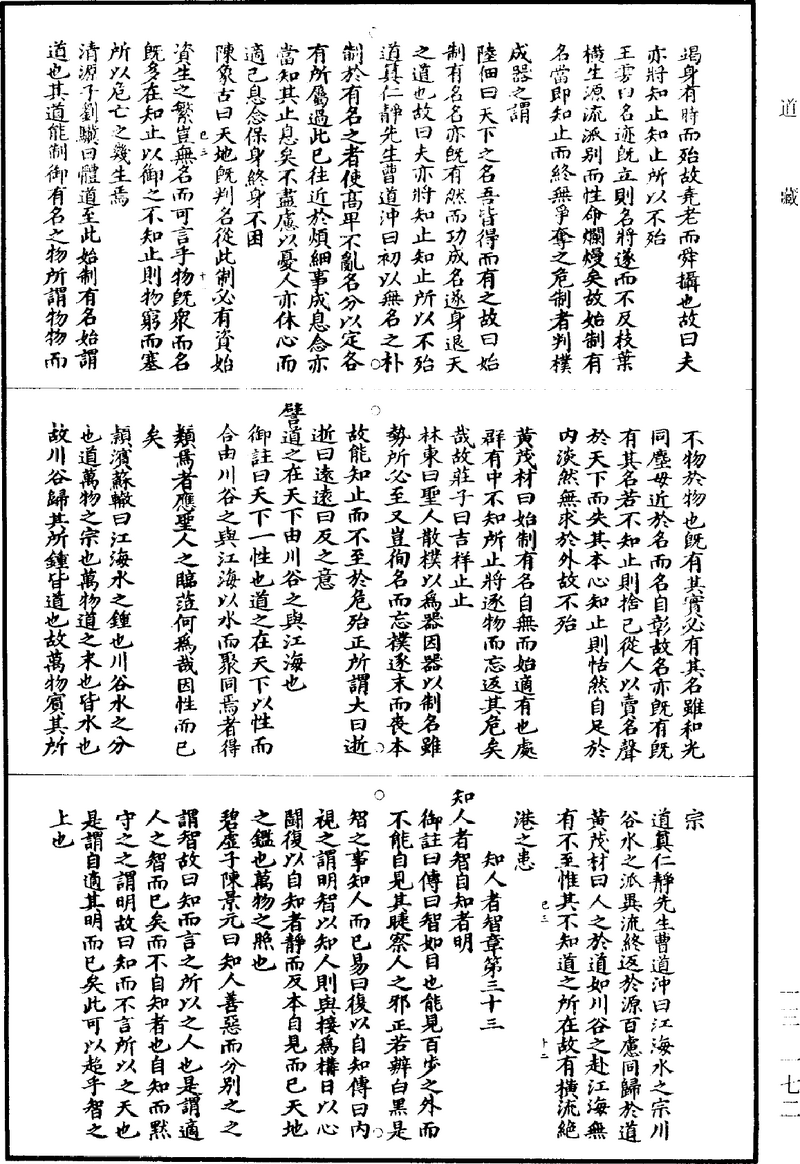 道藏
竭身有時而殆故堯老而舜攝也故曰夫
亦將知止知止所以不殆
王雱曰名迹既立則名將遂而不反枝葉
橫生源流派別而性命爛熳矣故始制有
名當即知止而終無爭奪之危制者判樸
成器之謂
陸佃曰天下之名吾皆得而有之故曰始
制有名名亦既有然而功成名遂身退天
之道也故曰夫亦將知止知止所以不殆
道真仁靜先生曹道沖曰初以無名之朴
制於有名之者使高卑不亂名分以定各
有所屬過此已往近於煩細事成息念亦
當知其止息矣不盡慮以憂人亦休心而
適己息念保身終身不困
陳象古曰天地既判名從此制必有資始
資生之繁豈無名而可言乎物既衆而名
既多在知止以御之不知止則物窮而塞
所以危亡之幾生焉
清源子劉驥曰體道至此始制有名始謂
道也其道能制御有名之物所謂物物而
不物於物也既有其實必有其名雖和光
同塵毋近於名而名自彰故名亦既有既
有其名若不知止則捨己從人以賣名聲
於天下而失其本心知止則恬然自足於
內淡然無求於外故不殆
黃茂材曰始制有名自無而始適有也處
群有中不知所止將逐物而忘返其危矣
哉故莊子曰吉祥止止
林東曰聖人散樸以爲器因器以制名雖
勢所必至又豈徇名而忘樸逐末而喪本
故能知止而不至於危殆正所謂大曰逝
逝曰遠遠曰反之意
譬道之在天下由川谷之與江海也
御註曰天下一性也道之在天下以性而
合由川谷之與江海以水而聚同焉者得
類焉者應聖人之臨蒞何爲哉因性而已
矣
潁濱蘇轍曰江海水之鍾也川谷水之分
也道萬物之宗也萬物道之末也皆水也
故川谷歸其所鍾皆道也故萬物賓其所
宗
道真仁靜先生曹道沖曰江海水之宗川
谷水之派異流終返於源百慮同歸於道
黃茂材曰人之於道如川谷之赴江海無
有不至惟其不知道之所在故有橫流絕
港之患
知人者智章第三十三
知人者智自知者明
御註曰傳曰智如目也能見百步之外而
不能自見其睫察人之邪正若辨白黑是
智之事知人而已易曰復以自知傳曰內
視之謂明智以知人則與接爲構日以心
鬭復以自知者靜而反本自見而已天地
之鑑也萬物之照也
碧虛子陳景元曰知人善惡而分別之之
謂智故曰知而言之所以之人也是謂適
人之智而已矣而不自知者也自知而默
守之之謂明故曰知而不言所以之天也
是謂自適其明而已矣此可以超乎智之
上也
一三—一七二